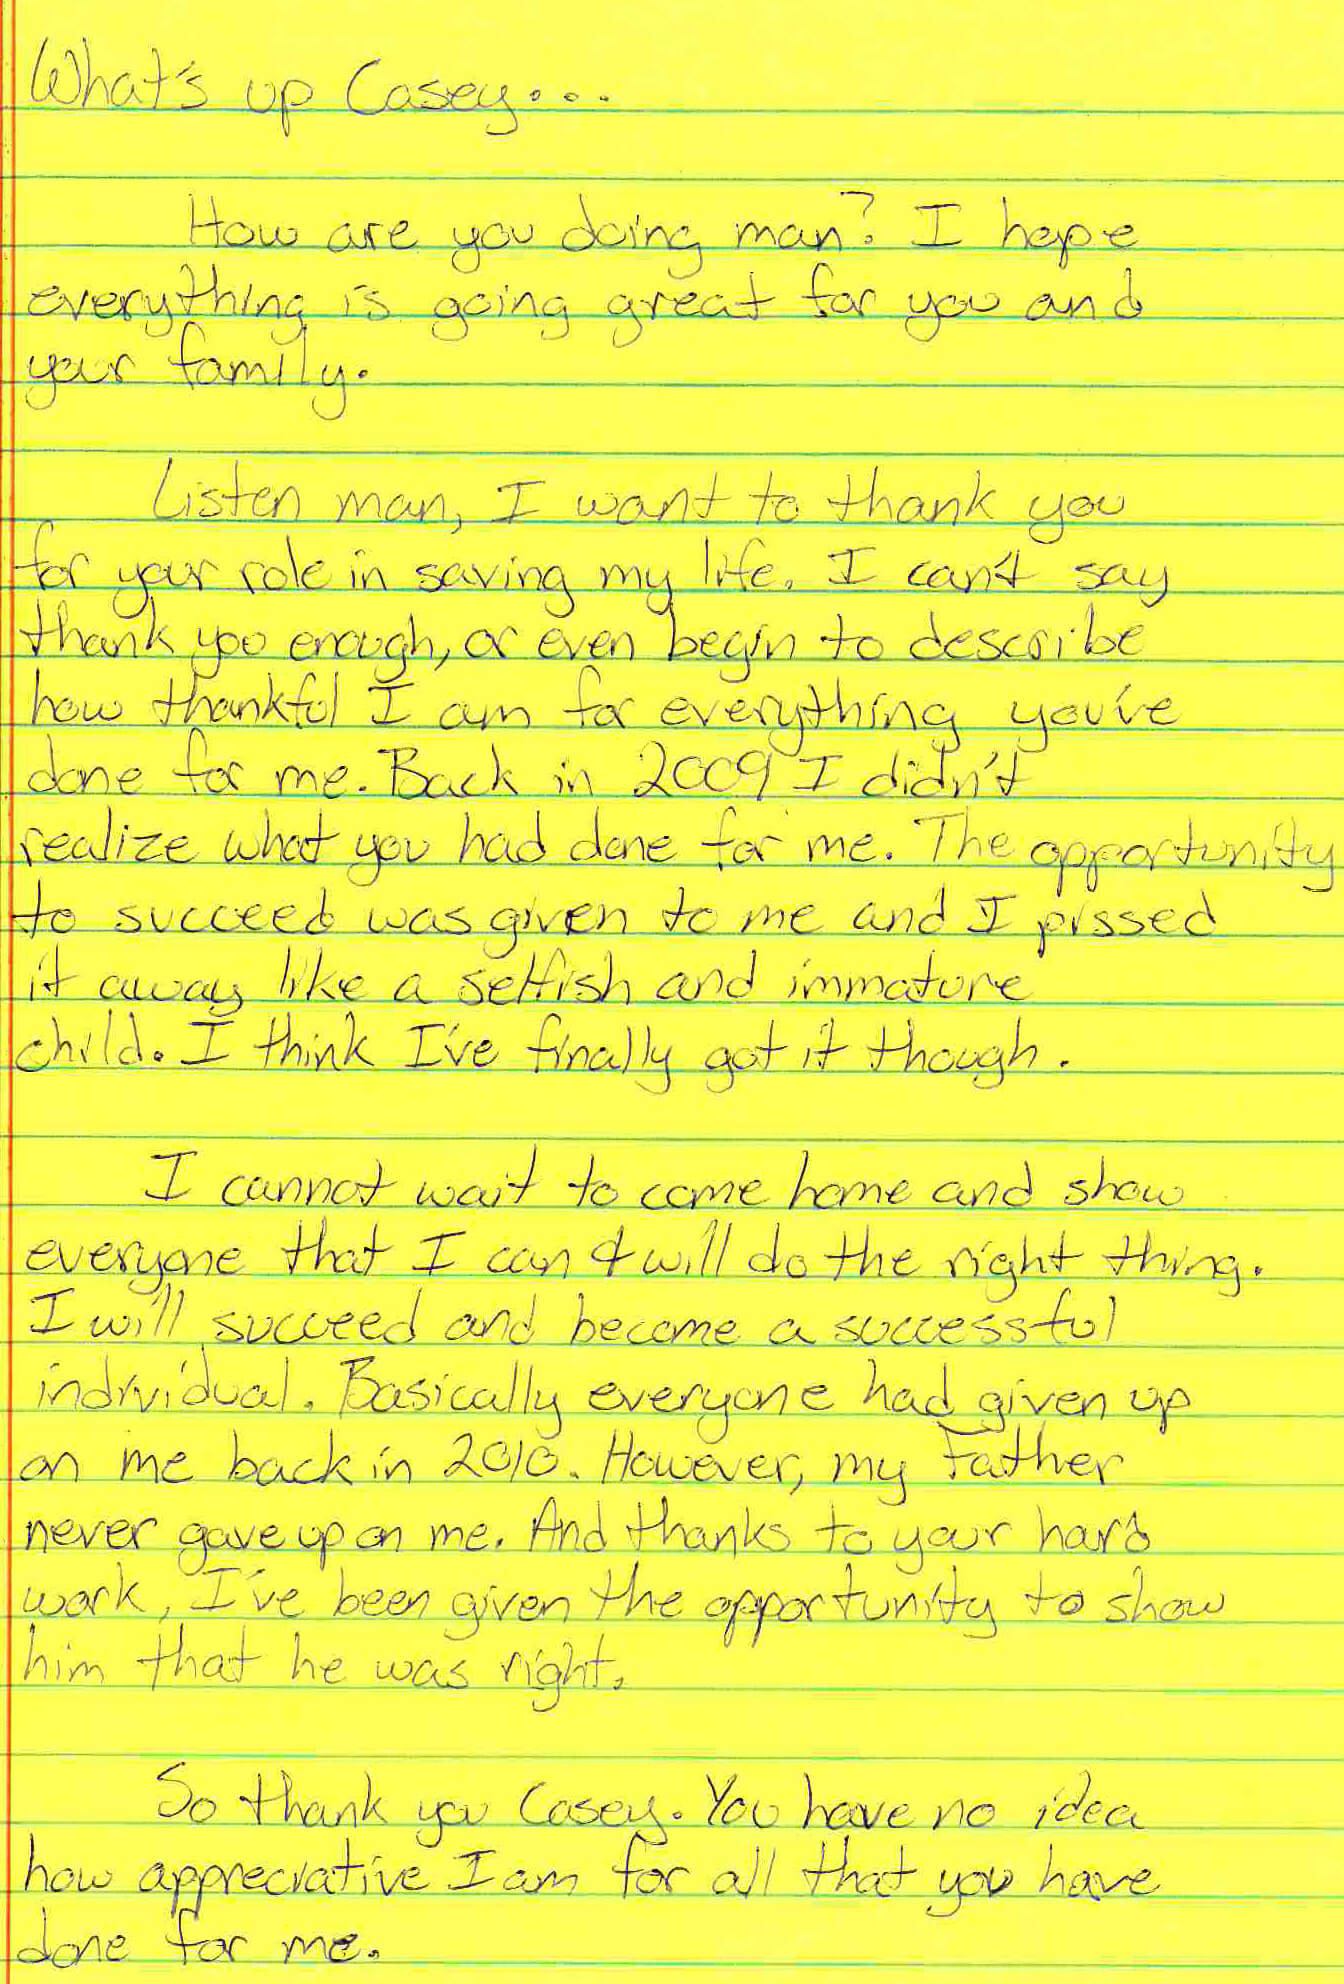 What's up Casey...
How are you doing man? I hope
everything is going great for you and
your family.
Listen man, I want to thank you
for your role in saving my life. I can't say
thank you enough, or even begin to describe
how thankful I am for everything you've
done for me. Back in 2009 I didn't
realize what you had done for me. The opportunity
to succeed was given to me and I pissed
it away like a selfish and immature
child. I think I've finally got it though.
I cannot wait to come home and show
everyone that I can & will do the right thing.
I will succeed and become a successful
individual. Basically everyone had given up
on me back in 2010. However, my Father
never gave up on me. And thanks to your hard
work, I've been given the opportunity to show
him that he was right.
So thank you Casey. You have no idea
how appreciative I am for all that you have
done for me.